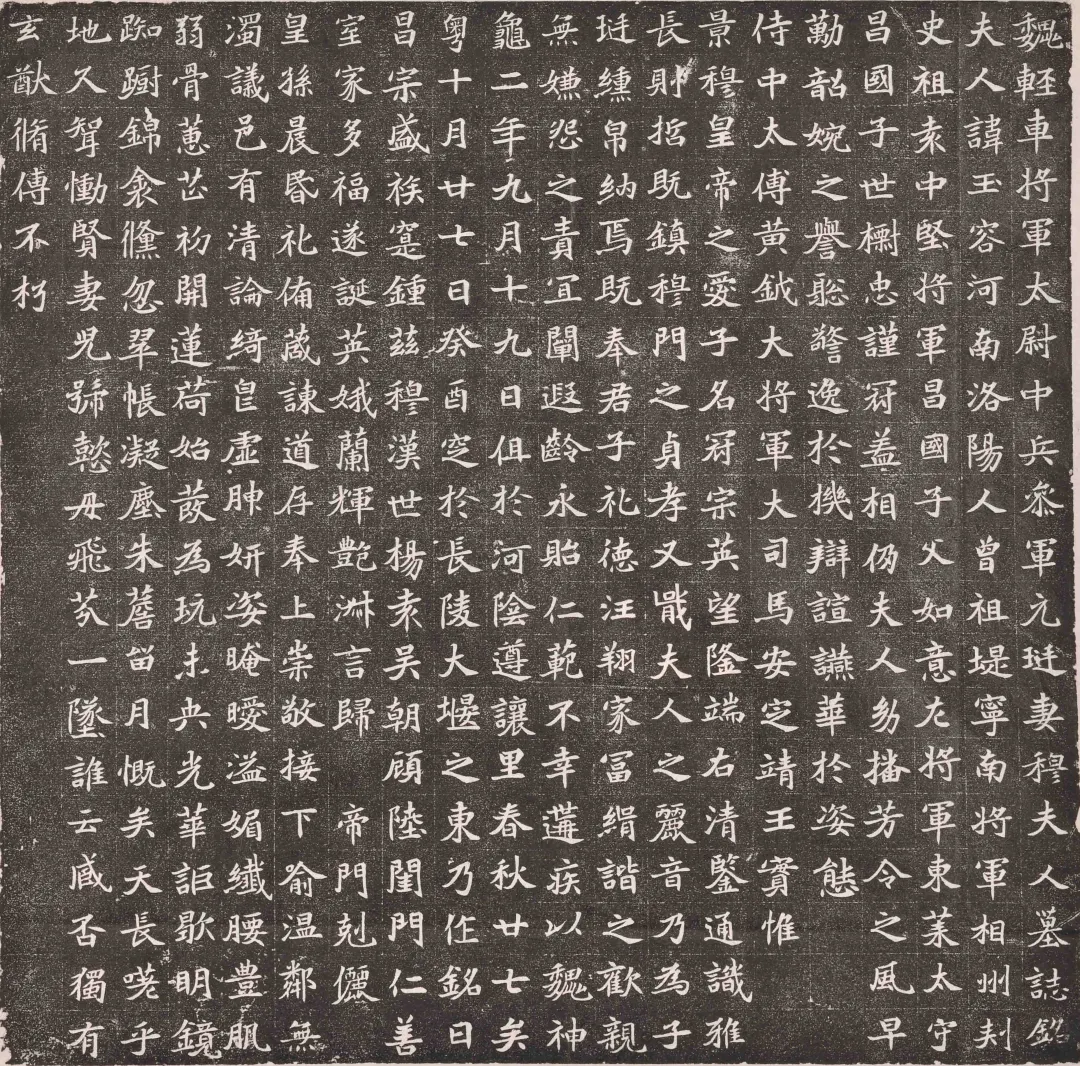 魏輕車將軍太尉中兵叅軍元珽妻穆夫人墓誌銘
夫人諱玉容河南洛陽人曾祖堤寧南將軍相州刾
史祖袁中堅將軍昌國子父如意左將軍東萊太守
昌國子世樹忠謹冠盖相仍夫人㓜播芳令之風早
勤韶婉之譽聡警逸於機辯諠讌華於姿態
侍中太傅黄鉞大將軍大司馬安定靖王寳惟
景穆皇帝之愛子名冠宗英望隆端右清鑒通識雅
長則哲既鎮穆門之貞孝又戢夫人之麗音乃為子
珽纁帛納焉既奉君子礼德汪翔家冨緝諧之歡親
無嫌怨之責宜闡遐齡永貽仁範不幸遘疾以魏神
龜二年九月十九日俎於河陰遵讓里春秋廿七矣
粤十月廿七日癸酉窆於長陵大堰之東乃作銘曰
昌宗盛族寔鍾茲穆漢世楊袁吴朝顧陸閨門仁善
室家多福遂誕英娥蘭輝艶淋言歸帝門剋儷無
皇孫晨昏礼俻葴諫道存奉上崇敬接下喻温鄰無
濁議邑有清論綺皃虚腗妍姿晻曖溢媚纖腰豊肌
弱骨蕙芷初開蓮荷始蕟為玩未央光華詎歇明鏡
踟蹰錦衾儵忽翠帳凝塵朱簷留月慨矣天長嗟乎
地久聲慟賢妻児號懿母飛芥一墜誰云臧否獨有
玄猷脩傳不朽